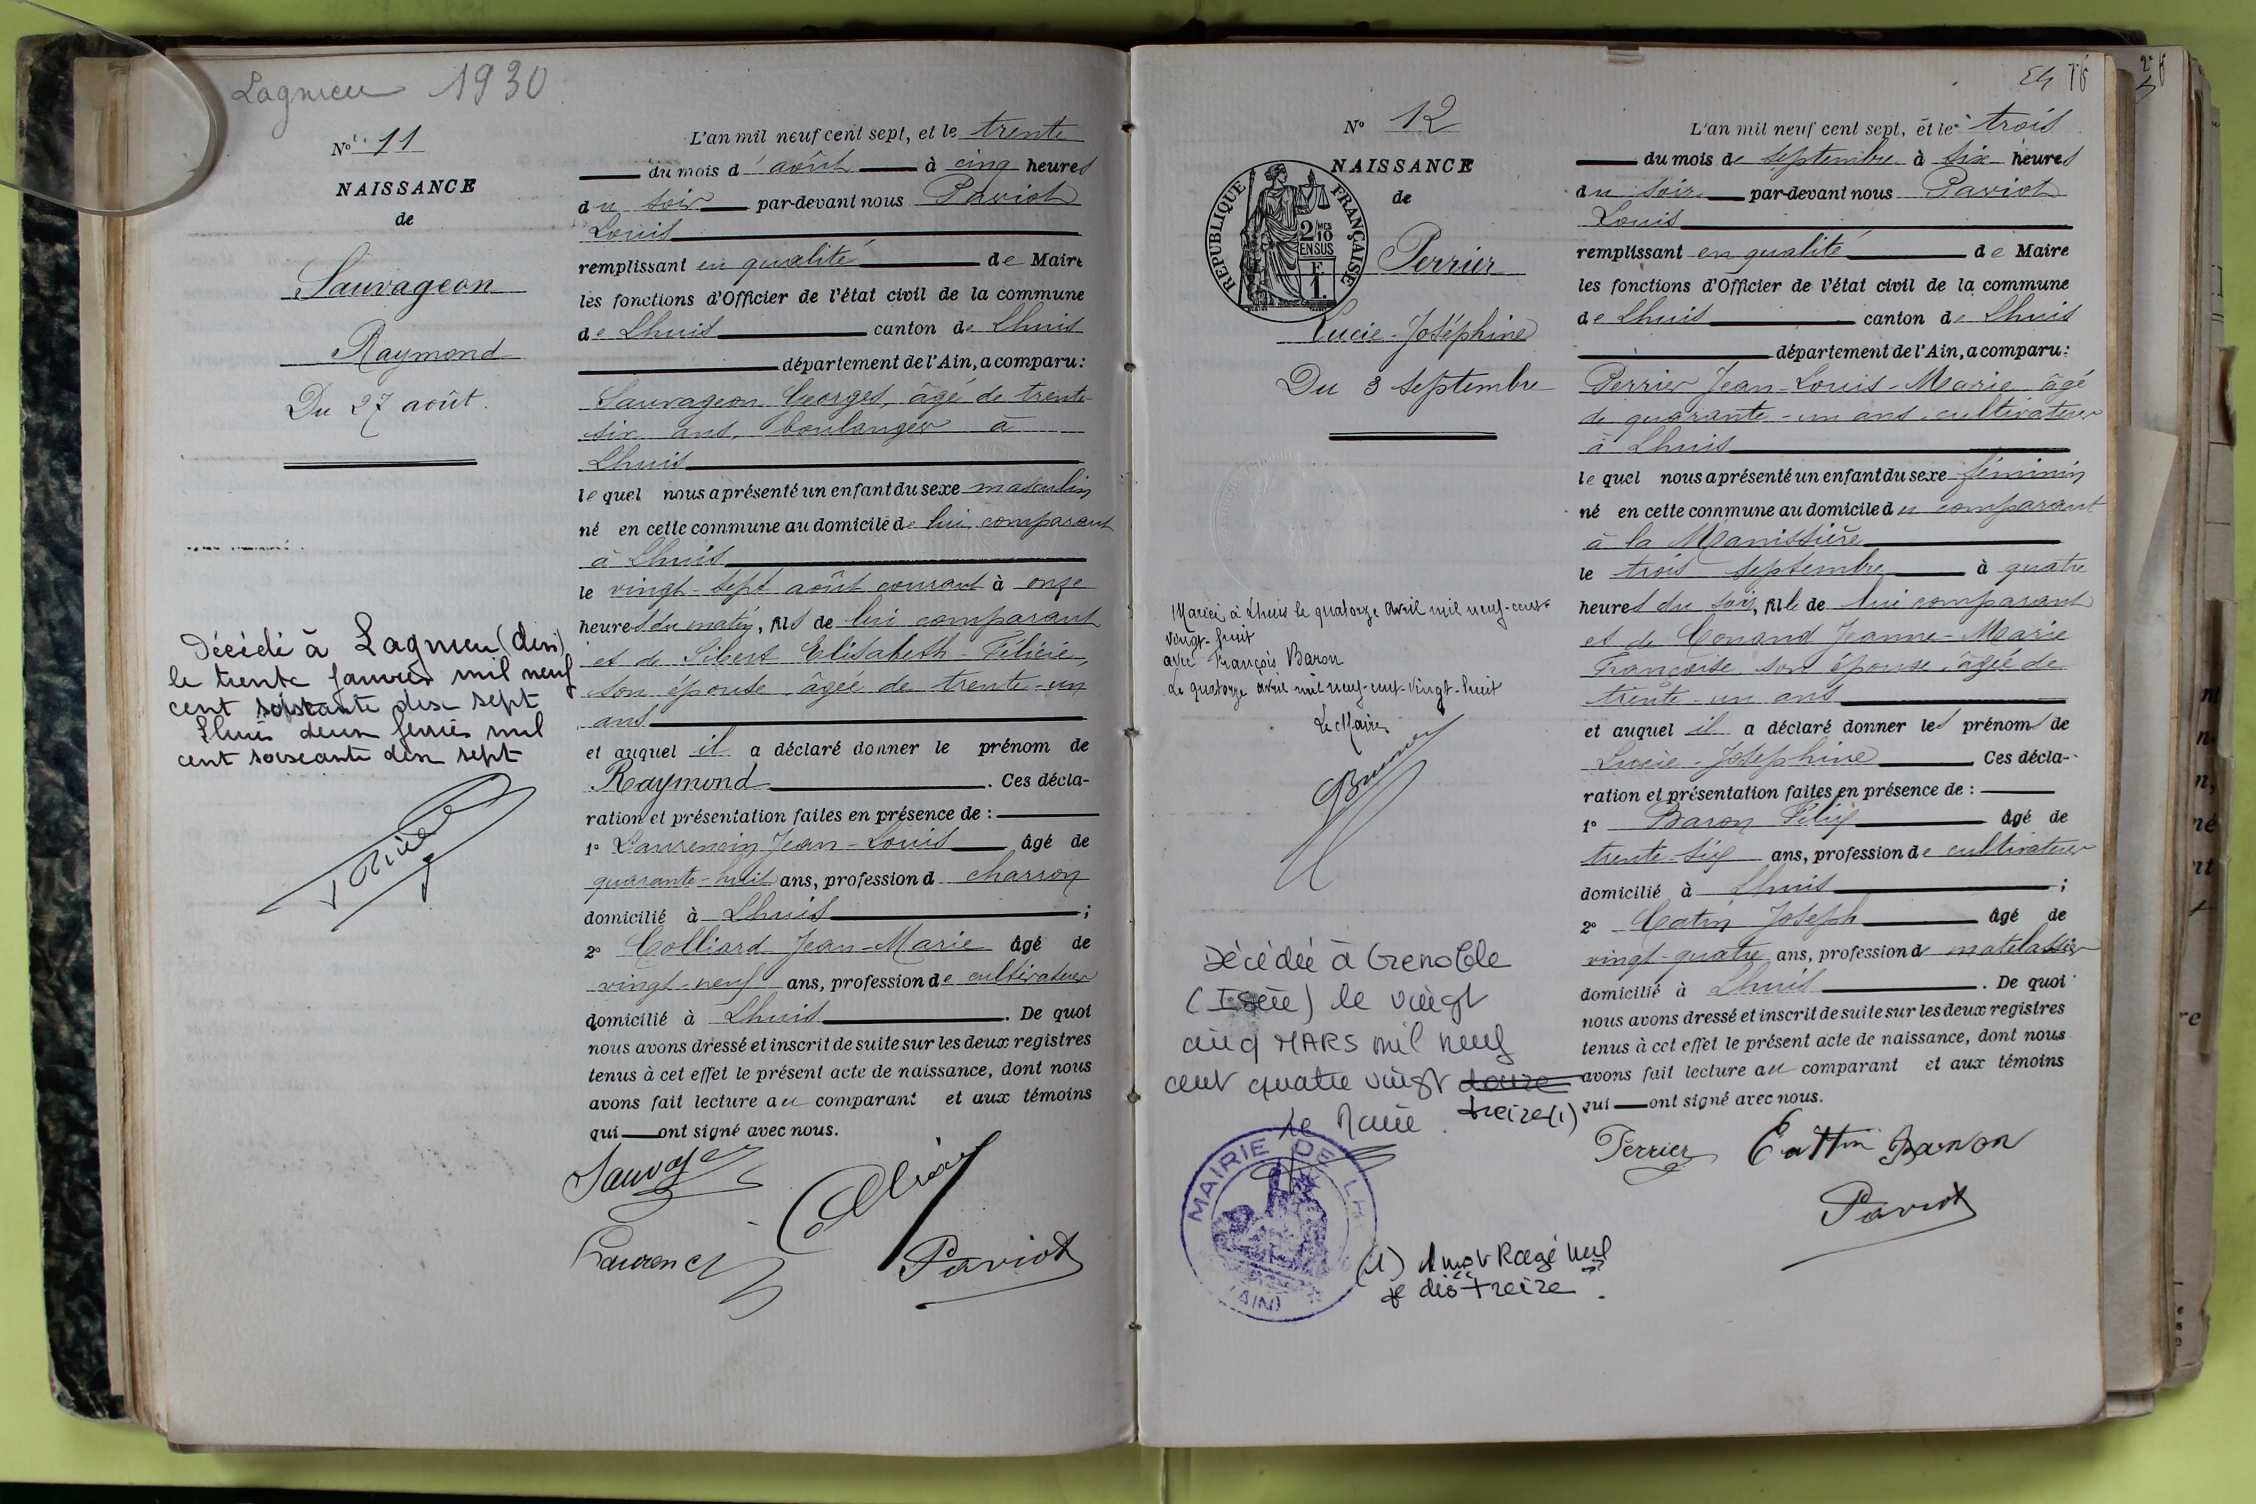 Lagnieu 1930
N° 11
NAISSANCE
de
Sauvageon
Raymond
Du 27 août.
Décédé à Lagnieu (Ain)
le trente janvier mil neuf
cent soixante dix sept
Lhuis deux février mil
cent soixante dix sept
L'an mil neuf cent sept, et le trente
du mois d'août à cinq heures
du soir par-devant nous Paviot
Louis
remplissant en qualité de Maire
les fonctions d'Officier de l'état civil de la commune
de Lhuis canton de Lhuis
département de l'Ain, a comparu:
Sauvageon Georges, âgé de trente
six ans, boulanger à
Lhuis
le quel nous a présenté un enfant du sexe masculin
né en cette commune au domicile de lui comparant
à Lhuis
le vingt-sept août courant à onze
heures du matin, fils de lui comparant
et de Sibert Elisabeth-Félicie,
son épouse, âgée de trente-un
ans
et auquel il a déclaré donner le prénom de
Raymond. Ces décla-
ration et présentation faites en présence de :
1° Laurencin Jean-Louis âgé de
quarante-huit ans, profession d charron
domicilié à Lhuis ;
2° Colliard Jean-Marie âgé de
vingt-neuf ans, profession de cultivateur
domicilié à Lhuis. De quoi
nous avons dressé et inscrit de suite sur les deux registres
tenus à cet effet le présent acte de naissance, dont nous
avons fait lecture au comparant et aux témoins
qui ont signé avec nous.
Colliard
Paviot
54 76
N° 12
NAISSANCE
de
REPUBLIQUE FRANÇAISE
2 MES 10
EN SUS
F
1.
Perrier
Lucie-Joséphine
Du 3 septembre
Mariée à Lhuis le quatorze avril mil neuf-cent-
vingt-huit
avec François Baron
Le quatorze avril mil neuf-cent-vingt-huit
Le Maire
Décédée à Grenoble
(Isère) le vingt
cinq MARS mil neuf
cent quatre vingt douze
treize (1)
le Maire.
MAIRIE DE LH
(AIN)
(1) 1 mot Rayé nul
dis treize.
L'an mil neuf cent sept, et le trois
du mois de septembre à six heures
du soir par-devant nous Paviot
Louis
remplissant en qualité de Maire
les fonctions d'Officier de l'état civil de la commune
de Lhuis canton de Lhuis
département de l'Ain, a comparu:
Perrier Jean-Louis-Marie âgé
de quarante-un ans, cultivateur
à Lhuis
le quel nous a présenté un enfant du sexe féminin
né en cette commune au domicile du comparant
à la Manissière
le trois septembre à quatre
heures du soir, fille de lui comparant
et de Conand Jeanne-Marie
Françoise son épouse, âgée de
trente-un ans
et auquel il a déclaré donner les prénoms de
Lucie-Joséphine Ces décla-
ration et présentation faites en présence de :
1° Baron Félix âgé de
trente-six ans, profession de cultivateur
domicilié à Lhuis ;
2° Catin Joseph âgé de
vingt-quatre ans, profession de matelassier
domicilié à Lhuis. De quoi
nous avons dressé et inscrit de suite sur les deux registres
tenus à cet effet le présent acte de naissance, dont nous
avons fait lecture au comparant et aux témoins
qui ont signé avec nous.
Perrier Cattin Baron
Paviot